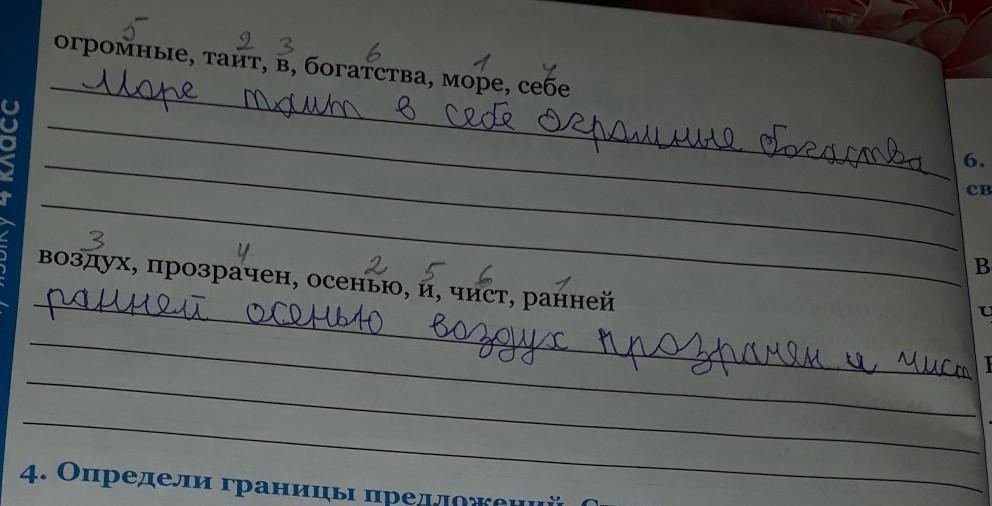 5 2 3 6 1 4
огромные, таит, в, богатства, море, себе
Море таит в себе огромные богаства
6.
св
3 4 2 5 6 1
воздух, прозрачен, осенью, и, чист, ранней
ранней осенью воздух прозрачен и чист
В
4. Определи границы предложений.
языку 4 класс